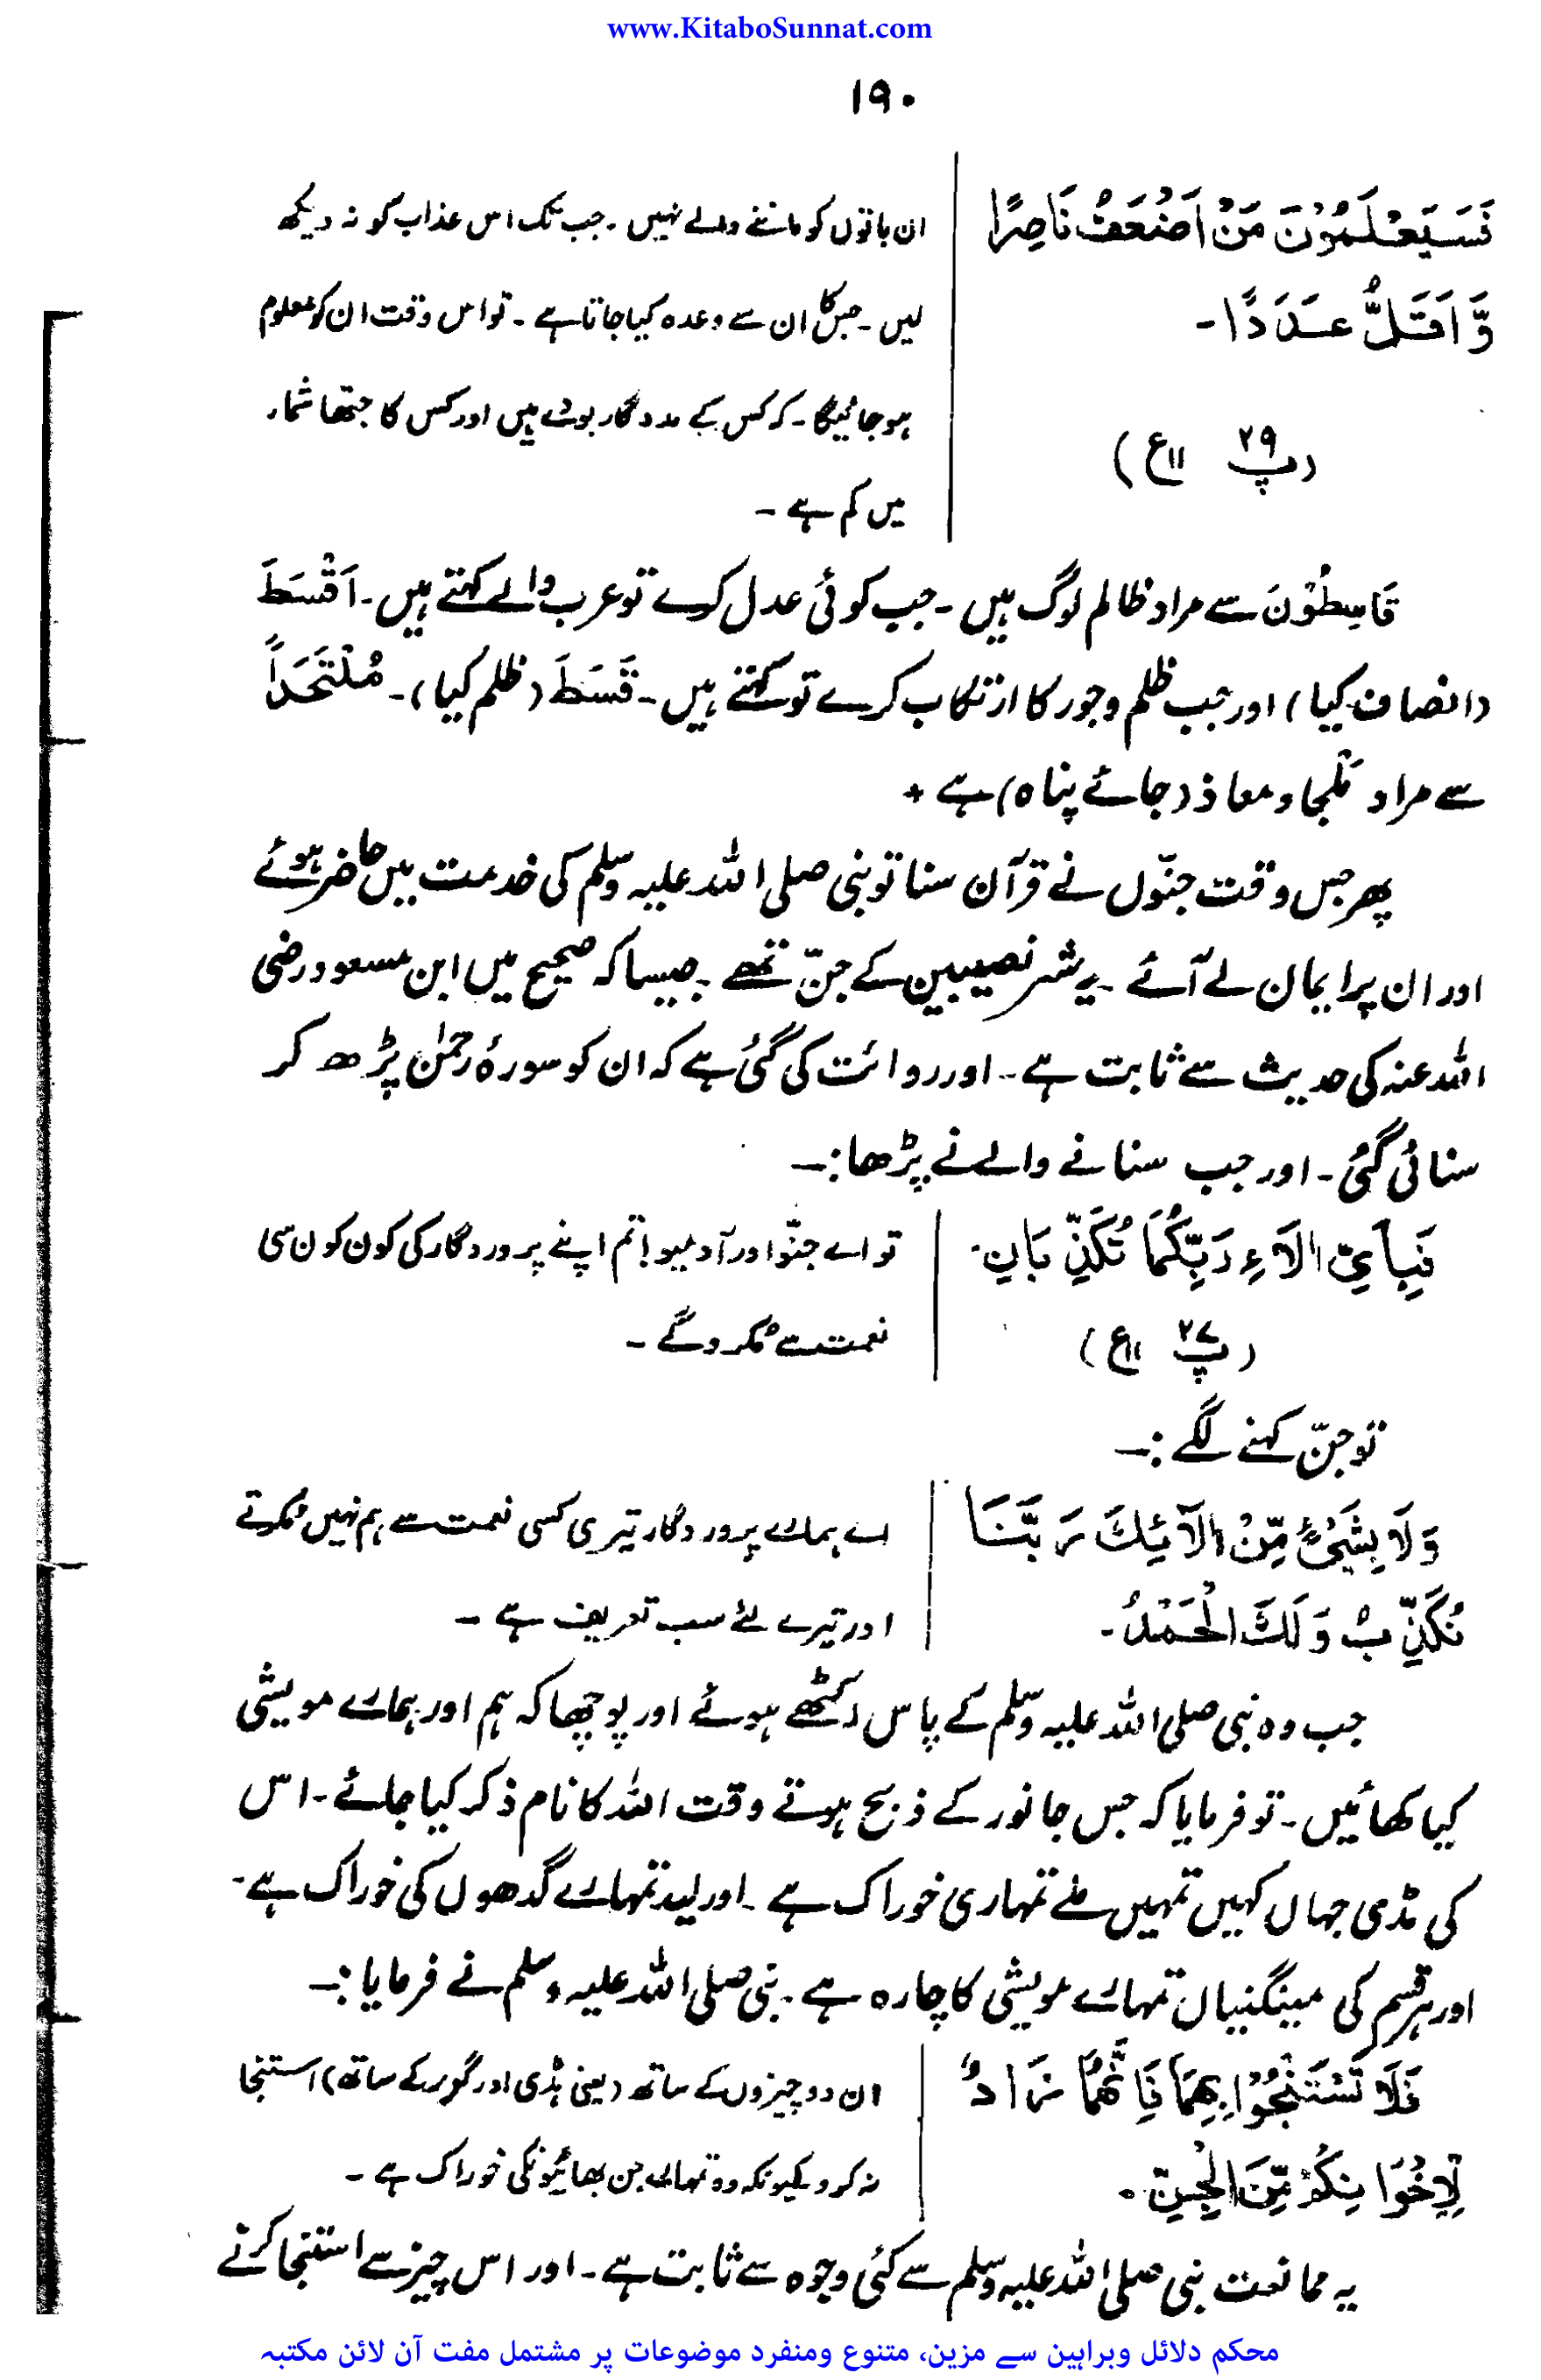 www.KitaboSunnat.com
۱۹۰
فَسَيَعْلَمُوْنَ مَنْ اَضْعَفُ نَاصِرًا
وَّ اَقَلُّ عَدَدًا۔
(پ ۲۹ ع ۱۱)
ان باتوں کو ماننے والے نہیں۔ جب تک اس عذاب کو نہ دیکھ
لیں۔ جس کا ان سے وعدہ کیا جاتا ہے۔ تو اس وقت ان کو معلوم
ہو جائیگا۔ کہ کس کے مددگار بودے ہیں اور کس کا جتھا شمار
میں کم ہے۔
قَاسِطُوْنَ سے مراد ظالم لوگ ہیں۔ جب کوئی عدل کرے تو عرب والے کہتے ہیں۔ اَقْسَطَ
(انصاف کیا) اور جب ظلم وجور کا ارتکاب کرے تو کہتے ہیں۔ قَسَطَ (ظلم کیا)۔ مُلْتَحَدًا
سے مراد مَلْجا و معاذ (جائے پناہ) ہے +
پھر جس وقت جنّوں نے قرآن سنا تو نبی صلی اللہ علیہ وسلم کی خدمت میں حاضر ہوئے
اور ان پر ایمان لے آئے۔ یہ شہر نصیبین کے جنّ تھے۔ جیسا کہ صحیح میں ابن مسعود رضی
اللہ عنہ کی حدیث سے ثابت ہے۔ اور روائت کی گئی ہے کہ ان کو سورۂ رحمٰن پڑھ کر
سنائی گئی۔ اور جب سنانے والے نے پڑھا:۔
فَبِاَيِّ اٰلَآءِ رَبِّكُمَا تُكَذِّبَانِ۔
(پ ۲۷ ع ۱۱)
تو اے جنّو اور آدمیو! تم اپنے پروردگار کی کون کون سی
نعمت سے مُکرو گے۔
تو جنّ کہنے لگے:۔
وَلَا بِشَيْءٍ مِّنْ اٰلَآئِكَ رَبَّنَا
نُكَذِّبُ وَلَكَ الْحَمْدُ۔
اے ہمارے پروردگار تیری کسی نعمت سے ہم نہیں مُکرتے
اور تیرے لئے سب تعریف ہے۔
جب وہ نبی صلی اللہ علیہ وسلم کے پاس اکٹھے ہوئے اور پوچھا کہ ہم اور ہمارے مویشی
کیا کھائیں۔ تو فرمایا کہ جس جانور کے ذبح ہوتے وقت اللہ کا نام ذکر کیا جائے۔ اس
کی ہڈی جہاں کہیں تمہیں ملے تمہاری خوراک ہے۔ اور لید تمہارے گدھوں کی خوراک ہے۔
اور ہر قسم کی مینگنیاں تمہارے مویشی کا چارہ ہے۔ نبی صلی اللہ علیہ وسلم نے فرمایا:۔
فَلَا تَسْتَنْجُوْا بِهِمَا فَاِنَّهُمَا زَادُ
لِاِخْوَانِكُمْ مِّنَ الْجِنِّ۔
ان دو چیزوں کے ساتھ (یعنی ہڈی اور گوبر کے ساتھ) استنجا
نہ کرو کیونکہ وہ تمہارے جن بھائیونکی خوراک ہے۔
یہ ممانعت نبی صلی اللہ علیہ وسلم سے کئی وجوہ سے ثابت ہے۔ اور اس چیز سے استنجا کرنے
محکم دلائل وبراہین سے مزین، متنوع ومنفرد موضوعات پر مشتمل مفت آن لائن مکتبہ